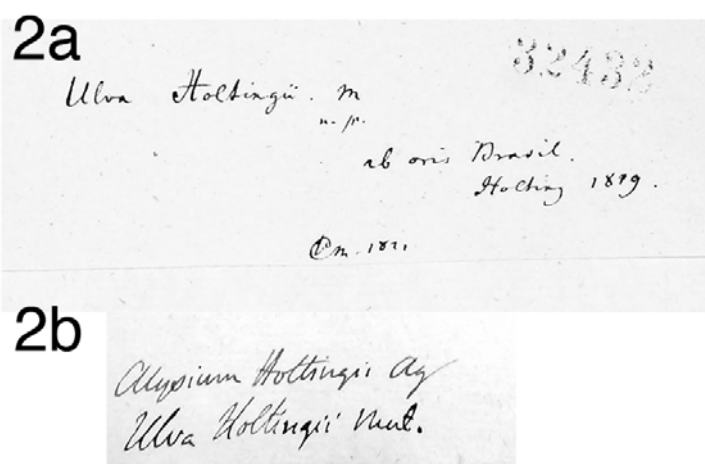 2a
32432
Ulva Holtingii. m
n. sp.
ab oris Brasil.
Holting 1819.
1821.
2b
Alysium Holtingii Ag
Ulva Holtingii Mut.